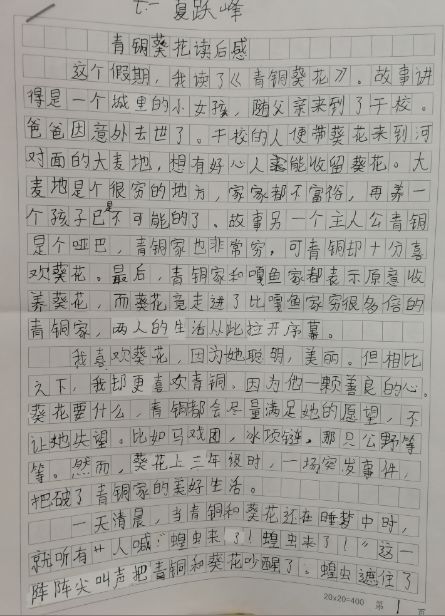 七一 夏跃峰
青铜葵花读后感
这个假期，我读了《青铜葵花》。故事讲
得是一个城里的小女孩，随父亲来到了干校。
爸爸因意外去世了。干校的人便带葵花来到河
对面的大麦地，想有好心人能收留葵花。大
麦地是个很穷的地方，家家都不富裕，再养一
个孩子已是不可能的了。故事另一个主人公青铜
是个哑巴，青铜家也非常穷，可青铜却十分喜
欢葵花。最后，青铜家和嘎鱼家都表示愿意收
养葵花，而葵花竟走进了比嘎鱼家穷很多倍的
青铜家，两人的生活从此拉开序幕。
我喜欢葵花，因为她聪明，美丽。但相比
之下，我却更喜欢青铜，因为他一颗善良的心。
葵花要什么，青铜都会尽量满足她的愿望，不
让她失望。比如马戏团，冰项链，那只公野等
等。然而，葵花上三年级时，一场突发事件，
把破了青铜家的美好生活。
一天清晨，当青铜和葵花还在睡梦中时，
就听有人喊“蝗虫来了！蝗虫来了！”这一
阵阵尖叫声把青铜和葵花吵醒了。蝗虫遮住了
20×20=400 第 1 页